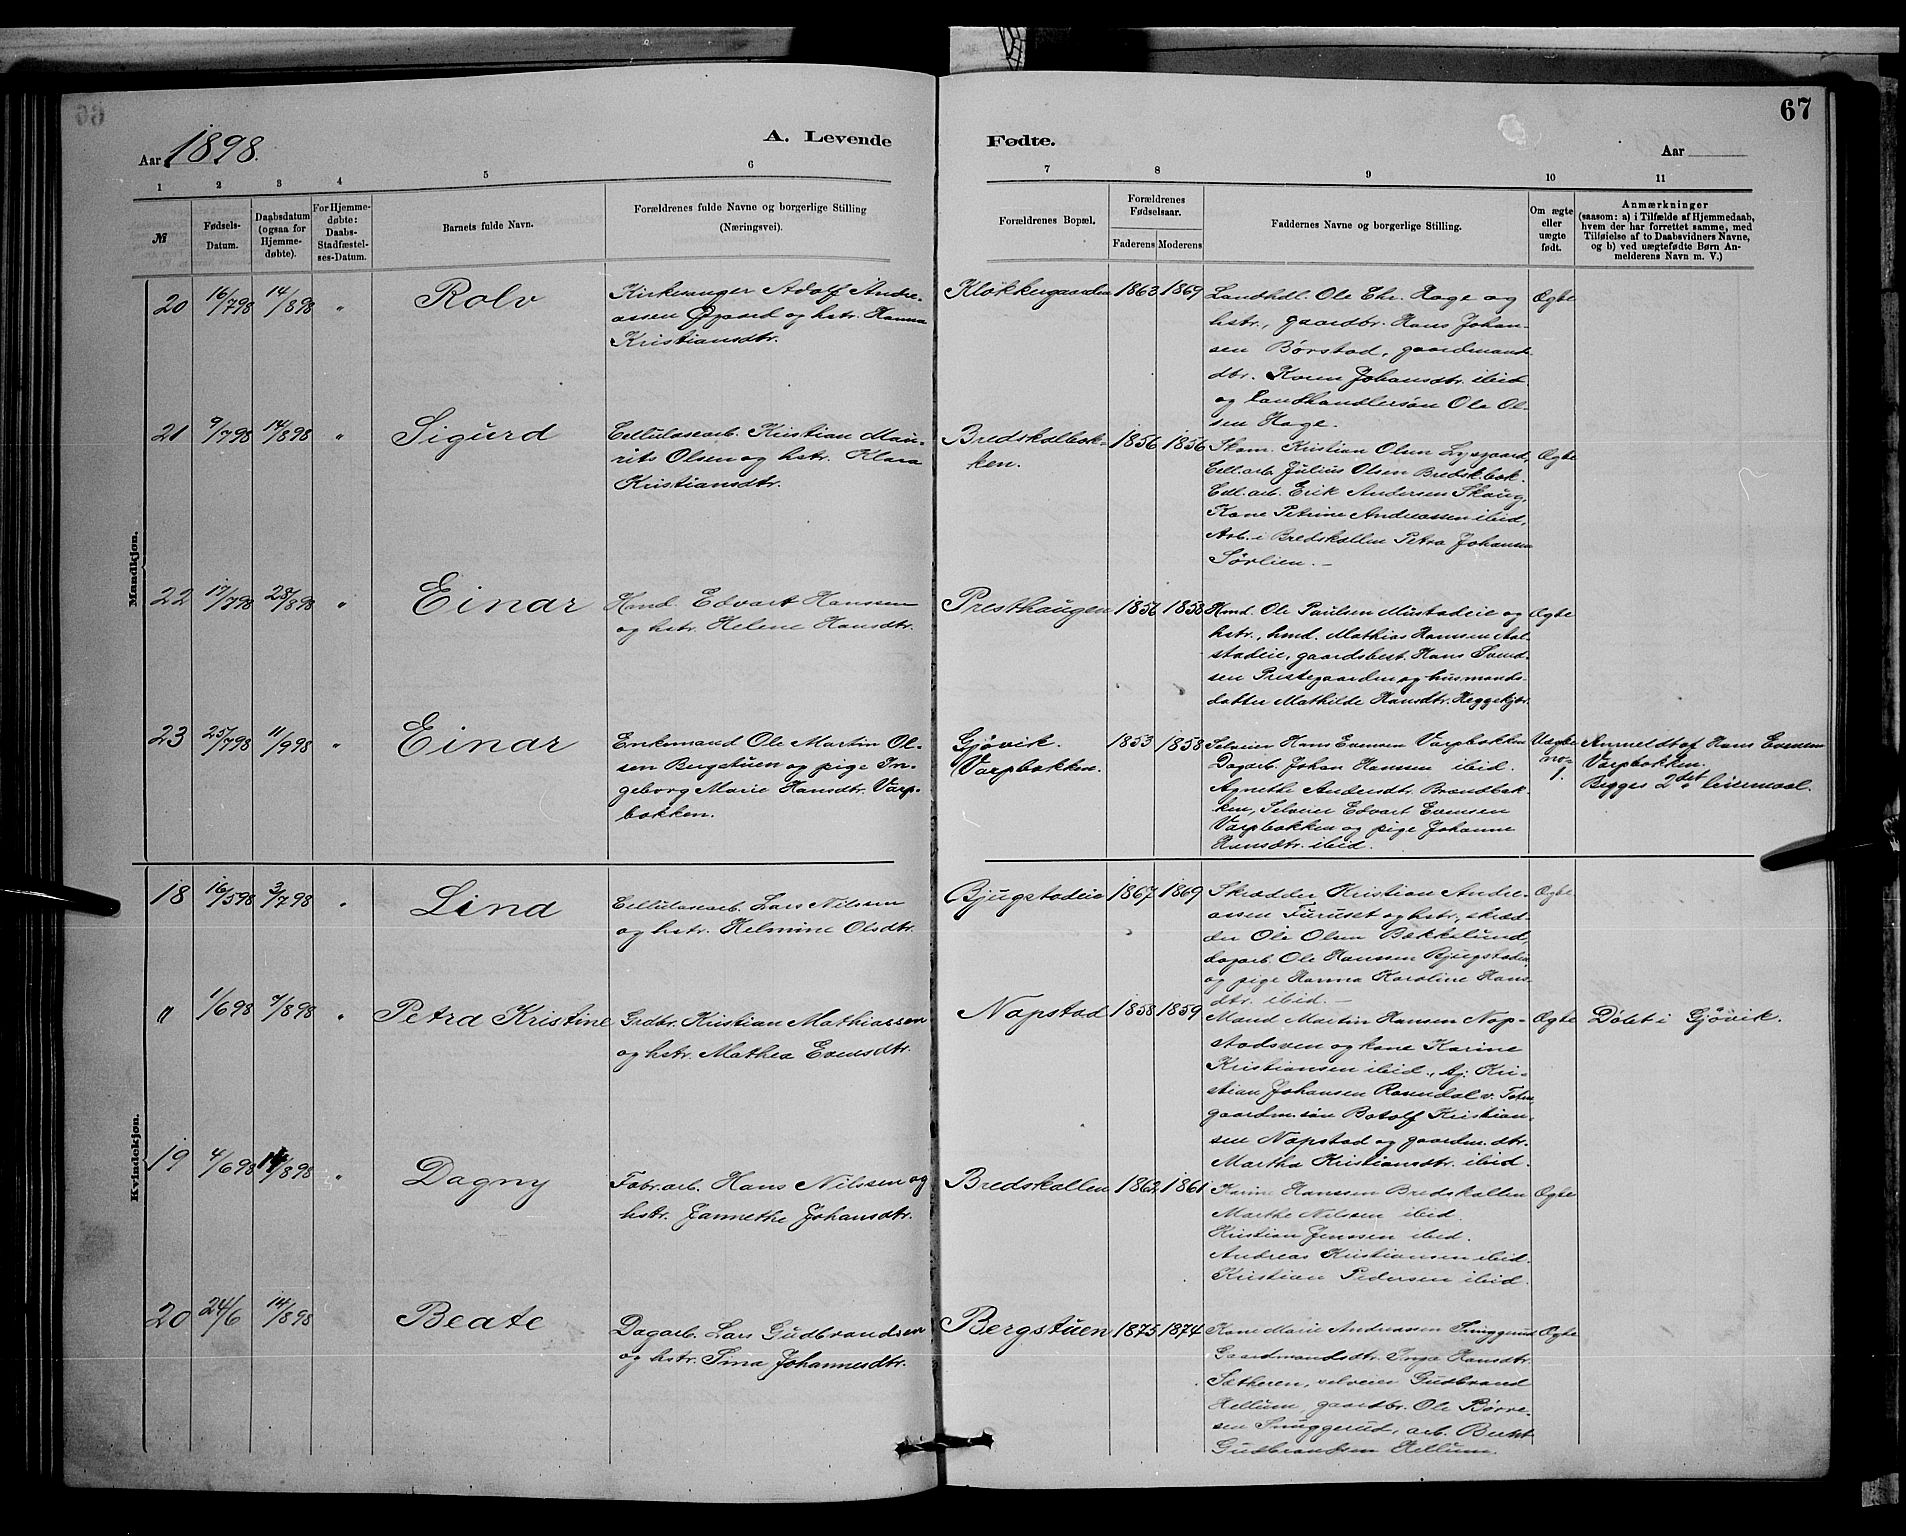 67
Aar 1898.
A. Levende Fødte.
Aar
1 2 3 4 5 6 7 8 9 10 11
№
Fødsels-
Datum.
Daabsdatum
(ogsaa for
Hjemme-
døbte).
For Hjemme-
døbte:
Daabs-
Stadfæstel-
ses-Datum.
Barnets fulde Navn.
Forældrenes fulde Navne og borgerlige Stilling
(Næringsvei).
Forældrenes Bopæl.
Forældrenes
Fødselsaar.
Faderens Moderens
Faddernes Navne og borgerlige Stilling.
Om ægte
eller
uægte
født.
Anmærkninger
(saasom: a) i Tilfælde af Hjemmedaab,
hvem der har forrettet samme, med
Tilføielse af to Daabsvidners Navne,
og b) ved uægtefødte Børn An-
melderens Navn m. V.)
Mandkjøn.
20 16/7 98 14/8 98 " Rolv
Kirkesanger Adolf Andre-
assen Øgaard og hstr. Hanna
Kristiansdtr.
Klokkergaarden 1863 1869
Landhdl. Ole Chr. Hage og
hstr., gaardbr. Hans Johan-
sen Børstad, gaardmands
dtr. Karen Johansdtr. ibid.
og Landhandlersøn Ole Ol-
sen Hage.
Ægte
21 9/7 98 14/8 98 " Sigurd
Cellulosearb. Kristian Mau-
rits Olsen og hstr. Klara
Kristiansdtr.
Bredskalbak-
ken.
1856 1856
Skom. Kristian Olsen Lysgaard,
Cell.arb. Julius Olsen Bredsk.bak.
Cell.arb. Erik Andersen Skaug,
Kone Petrine Andreassen ibid,
Arb. i Bredskallen Petra Johansen
Sørlien. -
Ægte
22 17/7 98 28/8 98 " Einar
Hmd. Edvart Hanssen
og hstr. Helene Hansdtr.
Presthaugen 1856 1858
Hmd. Ole Paulsen Mustadeie og
hstr., hmd. Mathias Hanssen Aal-
stadeie, gaardsbest. Hans Svend-
sen Prestegaarden og husmands-
datter Mathilde Hansdtr. Heggekjær.
Ægte
23 25/7 98 11/9 98 " Einar
Enkemand Ole Martin Ol-
sen Bergstuen og pige In-
geborg Marie Hansdtr. Varp-
bakken.
Gjøvik.
Varpbakken.
1853 1858
Selveier Hans Evensen Varpbakken
Dagarb. Johan Hanssen ibid.
Agnethe Andersdtr. Brandbak-
ken, Selveier Edvart Evensen
Varpbakken og pige Johanne
Hansdtr. ibid.
Uægte
no
1.
Anmeldt af Hans Evensen
Varpbakken.
Begges 2det leiermaal.
Kvindekjøn.
18 16/5 98 3/7 98 " Lina
Cellulosearb. Lars Nilssen
og hstr. Helmine Olsdtr.
Bjugstadeie 1867 1869
Skrædder Kristian Andre-
assen Furuset og hstr., skræd-
der Ole Olsen Bakkelund,
dagarb. Ole Hanssen Bjugstadeie
og pige Hanna Karoline Hans-
dtr. ibid. -
Ægte
" 1/6 98 7/8 98 " Petra Kristine
Grdbr. Kristian Mathiassen
og hstr. Mathea Evensdtr.
Napstad 1858 1859
Mand Martin Hansen Nap-
stadsven og kone Karine
Kristiansen ibid., Gj. Kri-
stian Johansen Rosendal v. Toten,
gaardm. søn Botolf Kristian-
sen Napstad og gaardm. dtr.
Martha Kristiansdtr. ibid.
Ægte
Døbt i Gjøvik.
19 4/6 98 14/8 98 " Dagny
Fabr.arb. Hans Nilssen og
hstr. Jannethe Johansdtr.
Bredskallen 1862 1861
Karine Hanssen Bredskallen
Marthe Nilssen ibid.
Kristian Jenssen ibid.
Andreas Kristiansen ibid.
Kristian Pedersen ibid.
Ægte
20 24/6 14/8 98 Beate
Dagarb. Lars Gudbrandsen
og hstr. Sina Johannesdtr.
Bergstuen 1875 1874
Kone Marie Andreassen Snuggerud
Gaardmandsdtr. Inga Hansdtr.
Sætheren, selveier Gudbrand
Hellum, gaardbr. Ole Børre-
sen Snuggerud, arb. Berht
Gudbrandsen Hellum.
Ægte